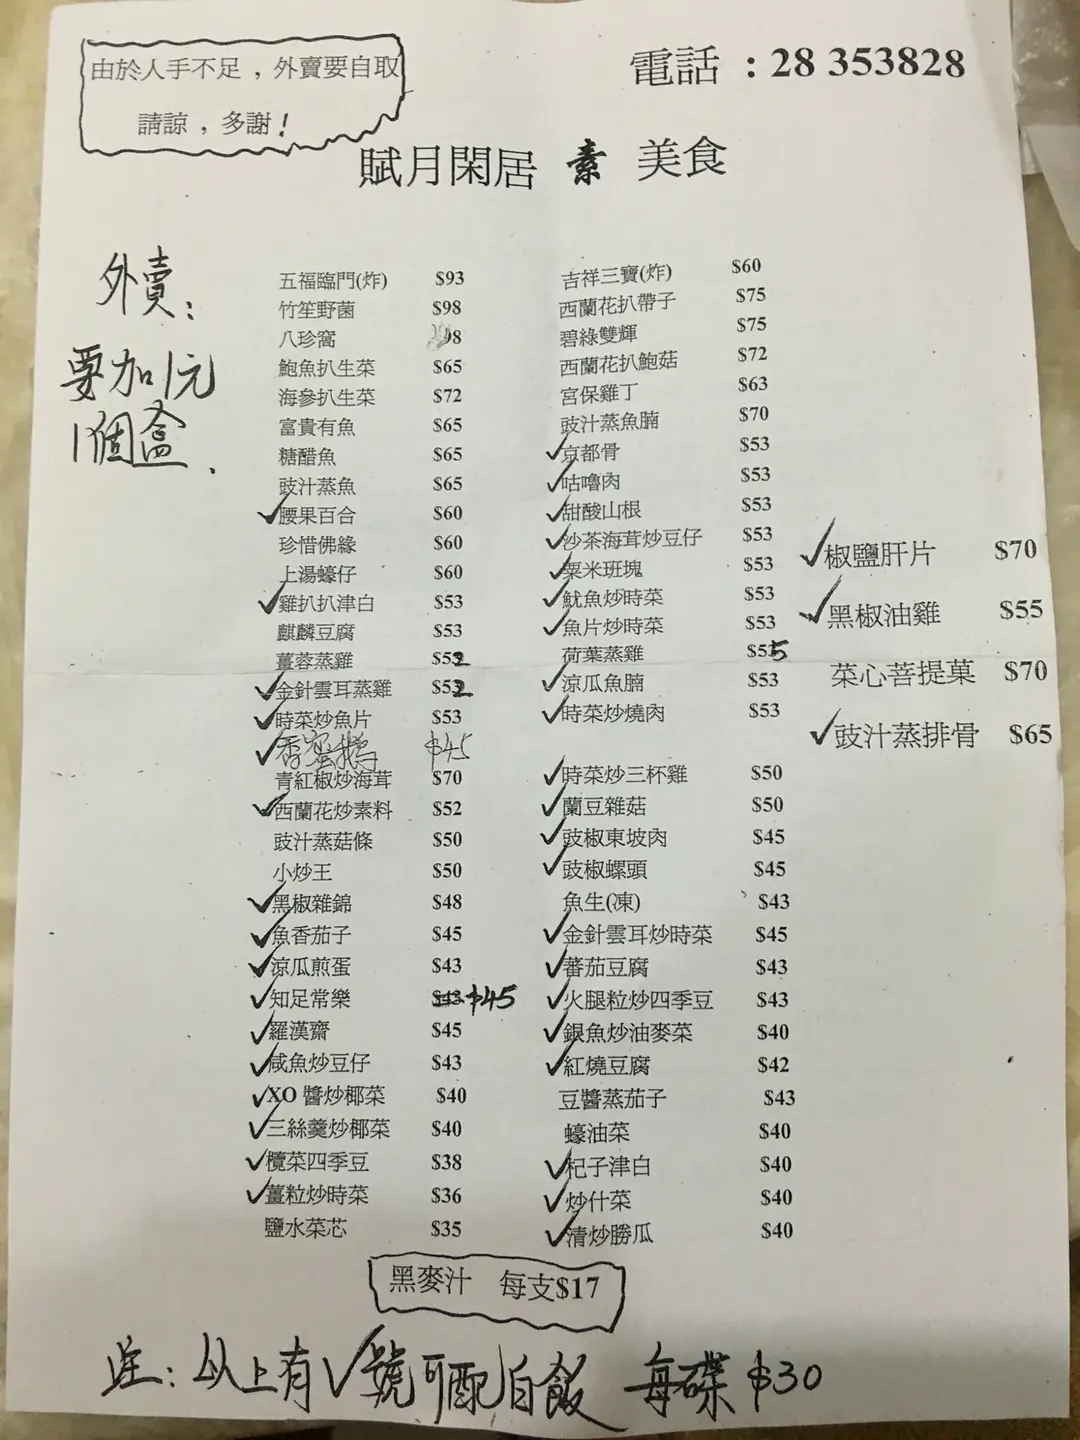 由於人手不足，外賣要自取
請諒，多謝！
電話：28 353828
賦月閑居 素 美食
外賣：
要加1元
1個盒．
五福臨門(炸) $93
竹笙野菌 $98
八珍窩 98
鮑魚扒生菜 $65
海參扒生菜 $72
富貴有魚 $65
糖醋魚 $65
豉汁蒸魚 $65
✓腰果百合 $60
珍惜佛緣 $60
上湯蠔仔 $60
✓雞扒扒津白 $53
麒麟豆腐 $53
薑蓉蒸雞 $52
✓金針雲耳蒸雞 $52
✓時菜炒魚片 $53
✓香蜜鵝 $45
青紅椒炒海茸 $70
✓西蘭花炒素料 $52
豉汁蒸菇條 $50
小炒王 $50
✓黑椒雜錦 $48
✓魚香茄子 $45
✓涼瓜煎蛋 $43
✓知足常樂 $43 $45
✓羅漢齋 $45
✓咸魚炒豆仔 $43
✓XO 醬炒椰菜 $40
✓三絲羹炒椰菜 $40
✓欖菜四季豆 $38
✓薑粒炒時菜 $36
鹽水菜芯 $35
吉祥三寶(炸) $60
西蘭花扒帶子 $75
碧綠雙輝 $75
西蘭花扒鮑菇 $72
宮保雞丁 $63
豉汁蒸魚腩 $70
✓京都骨 $53
✓咕嚕肉 $53
✓甜酸山根 $53
✓沙茶海茸炒豆仔 $53
✓粟米班塊 $53
✓魷魚炒時菜 $53
✓魚片炒時菜 $53
荷葉蒸雞 $55
✓涼瓜魚腩 $53
✓時菜炒燒肉 $53
✓時菜炒三杯雞 $50
✓蘭豆雜菇 $50
✓豉椒東坡肉 $45
✓豉椒螺頭 $45
魚生(凍) $43
✓金針雲耳炒時菜 $45
✓蕃茄豆腐 $43
✓火腿粒炒四季豆 $43
✓銀魚炒油麥菜 $40
✓紅燒豆腐 $42
豆醬蒸茄子 $43
蠔油菜 $40
✓杞子津白 $40
✓炒什菜 $40
✓清炒勝瓜 $40
✓椒鹽肝片 $70
✓黑椒油雞 $55
菜心菩提菓 $70
✓豉汁蒸排骨 $65
黑麥汁 每支$17
注：以上有✓號可配白飯 每碟 $30